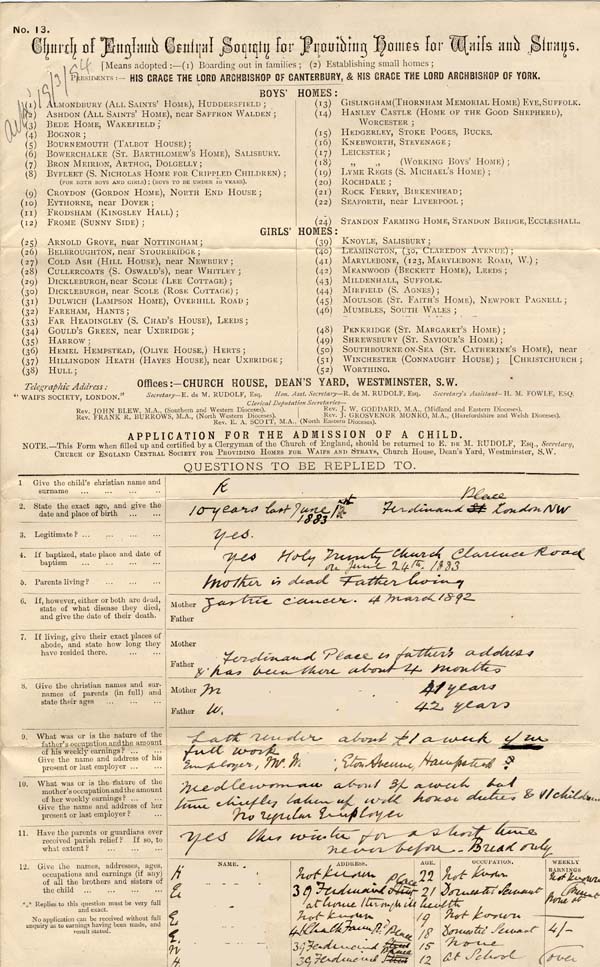 No. 13.
Church of England Central Society for Providing Homes for Waifs and Strays.
[Means adopted:—(1) Boarding out in families; (2) Establishing small homes;
PRESIDENTS:— HIS GRACE THE LORD ARCHBISHOP OF CANTERBURY, & HIS GRACE THE LORD ARCHBISHOP OF YORK.
BOYS' HOMES:
(1) ALMONDBURY (ALL SAINTS' HOME), HUDDERSFIELD;
(2) ASHDON (ALL SAINTS' HOME), near SAFFRON WALDEN;
(3) BEDE HOME, WAKEFIELD;
(4) BOGNOR;
(5) BOURNEMOUTH (TALBOT HOUSE);
(6) BOWERCHALKE (ST. BARTHLOMEW'S HOME), SALISBURY.
(7) BRON MEIRION, ARTHOG, DOLGELLY;
(8) BYFLEET (S. NICHOLAS HOME FOR CRIPPLED CHILDREN);
(FOR BOTH BOYS AND GIRLS); (BOYS TO BE UNDER 10 YEARS).
(9) CROYDON (GORDON HOME), NORTH END HOUSE;
(10) EYTHORNE, near DOVER;
(11) FRODSHAM (KINGSLEY HALL);
(12) FROME (SUNNY SIDE);
(13) GISLINGHAM (THORNHAM MEMORIAL HOME) EYE, SUFFOLK.
(14) HANLEY CASTLE (HOME OF THE GOOD SHEPHERD),
WORCESTER;
(15) HEDGERLEY, STOKE POGES, BUCKS.
(16) KNEBWORTH, STEVENAGE;
(17) LEICESTER;
(18) „ „ (WORKING BOYS' HOME);
(19) LYME REGIS (S. MICHAEL'S HOME);
(20) ROCHDALE;
(21) ROCK FERRY, BIRKENHEAD;
(22) SEAFORTH, near LIVERPOOL;
(24) STANDON FARMING HOME, STANDON BRIDGE, ECCLESHALL.
GIRLS' HOMES:
(25) ARNOLD GROVE, near NOTTINGHAM;
(26) BELBROUGHTON, near STOURBRIDGE;
(27) COLD ASH (HILL HOUSE), near NEWBURY;
(28) CULLERCOATS (S. OSWALD'S), near WHITLEY;
(29) DICKLEBURGH, near SCOLE (LEE COTTAGE);
(30) DICKLEBURGH, near SCOLE (ROSE COTTAGE);
(31) DULWICH (LAMPSON HOME), OVERHILL ROAD;
(32) FAREHAM, HANTS;
(33) FAR HEADINGLEY (S. CHAD'S HOUSE), LEEDS;
(34) GOULD'S GREEN, near UXBRIDGE;
(35) HARROW;
(36) HEMEL HEMPSTEAD, (OLIVE HOUSE,) HERTS;
(37) HILLINGDON HEATH (HAYES HOUSE), near UXBRIDGE;
(38) HULL;
(39) KNOYLE, SALISBURY;
(40) LEAMINGTON, (30, CLAREDON AVENUE);
(41) MARYLEBONE, (123, MARYLEBONE ROAD, W.);
(42) MEANWOOD (BECKETT HOME), LEEDS;
(43) MILDENHALL, SUFFOLK.
(44) MIRFIELD (S. AGNES);
(45) MOULSOE (ST. FAITH'S HOME), NEWPORT PAGNELL;
(46) MUMBLES, SOUTH WALES;
(48) PENKRIDGE (ST. MARGARET'S HOME);
(49) SHREWSBURY (ST. SAVIOUR'S HOME);
(50) SOUTHBOURNE-ON-SEA (ST. CATHERINE'S HOME), near
(51) WINCHESTER (CONNAUGHT HOUSE); [CHRISTCHURCH;
(52) WORTHING.
Offices:—CHURCH HOUSE, DEAN'S YARD, WESTMINSTER, S.W.
Telegraphic Address:
"WAIFS SOCIETY, LONDON."
Secretary—E. de M. RUDOLF, Esq. Hon. Asst. Secretary—R. de M. RUDOLF, Esq. Secretary's Assistant—H. M. FOWLE, ESQ.
Clerical Deputation Secretaries—
Rev. JOHN BLEW, M.A., (Southern and Western Dioceses). Rev. J. W. GODDARD, M.A., (Midland and Eastern Dioceses).
Rev. FRANK R. BURROWS, M.A., (North Western Dioceses). Rev. J. GROSVENOR MUNRO, M.A., (Herefordshire and Welsh Dioceses).
Rev. E. A. SCOTT, M.A., (North Eastern Dioceses).
APPLICATION FOR THE ADMISSION OF A CHILD.
NOTE.—This Form when filled up and certified by a Clergyman of the Church of England, should be returned to E. DE M. RUDOLF, Esq., Secretary,
CHURCH OF ENGLAND CENTRAL SOCIETY FOR PROVIDING HOMES FOR WAIFS AND STRAYS, Church House, Dean's Yard, Westminster, S.W.
QUESTIONS TO BE REPLIED TO.
1 Give the child's christian name and
surname ... ... ... ...
2. State the exact age, and give the
date and place of birth ... ...
10 years last June
1883
Ferdinand St Place London NW
3. Legitimate? ... ... ... ...
Yes.
4. If baptized, state place and date of
baptism ... ... ... ...
Yes Holy Trinity Church Clarence Road
on June 24th. 1883
5. Parents living? ... ... ...
Mother is dead Father living
6. If, however, either or both are dead,
state of what disease they died,
and give the date of their death.
Mother Gastric cancer. 4 March 1892
Father
7. If living, give their exact places of
abode, and state how long they
have resided there. ... ...
Mother
Father Ferdinand Place is father's address
& has been there about 4 months
8. Give the christian names and sur-
names of parents (in full) and
state their ages ... ... ...
Mother M 41 years
Father W. 42 years
9. What was or is the nature of the
father's occupation and the amount
of his weekly earnings? ... ...
Give the name and address of his
present or last employer?
Lath render about £1 a week if in
full work
Employer, Mr. M Eton Avenue, Hampstead
10. What was or is the nature of the
mother's occupation and the amount
of her weekly earnings? ... ...
Give the name and address of her
present or last employer?
Needlewoman about 3/ a week but
time chiefly taken up with house duties & 11 children
No regular Employer
11. Have the parents or guardians ever
received parish relief? If so, to
what extent? ... ... ...
Yes this winter for a short time
never before. Bread only
12. Give the names, addresses, ages,
occupations and earnings (if any)
of all the brothers and sisters of
the child ... ... ... ...
"." Replies to this question must be very full
and exact.
No application can be received without full
enquiry as to earnings having been made, and
result stated.
NAME. ADDRESS. AGE. OCCUPATION. WEEKLY EARNINGS
H Not known 22 Not known Not known
E. 39 Ferdinand Place 21 Domestic Servant
at home through ill health
E. Not known 19 Not known
E. 18 Domestic Servant 4/-
W 39 Ferdinand Place 15 None
H 39 Ferdinand Place 12 at School
(over